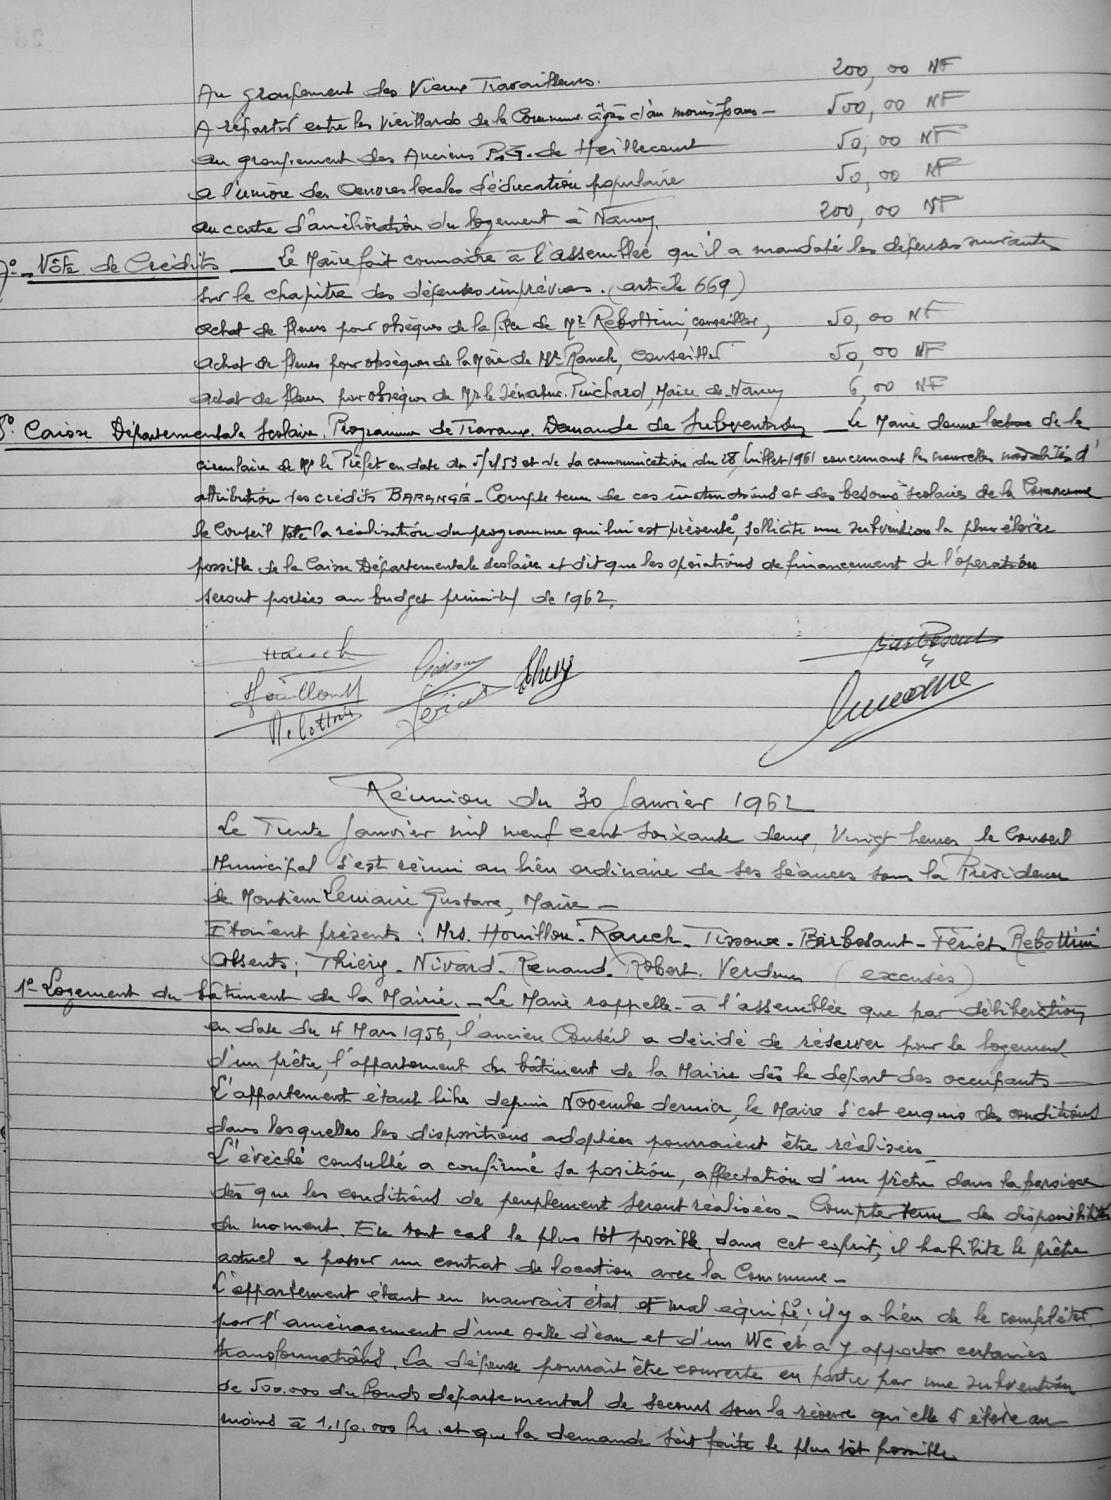 Au groupement des Vieux Travailleurs. 200,00 NF
A répartir entre les vieillards de la Commune âgés d'au moins ans - 500,00 NF
au groupement des Anciens P.G. de Heillecourt 50,00 NF
a l'union des Oeuvres locales d'éducation populaire 50,00 NF
au centre d'amélioration du logement à Nancy. 200,00 NF
7° - Vote de Crédits - Le Maire fait connaitre à l'assemblée qu'il a mandaté les dépenses suivantes
sur le chapitre des dépenses imprévues. (article 669)
achat de fleurs pour obsèques de la de Mr Rebottini, conseiller, 50,00 NF
achat de fleurs pour obsèques de la Mère de Mr Rauch, Conseiller 50,00 NF
achat de fleurs pour obsèques de Mr le Sénateur Pinchard, Maire de Nancy 6,00 NF
8° Caisse Départementale Scolaire. Programme de Travaux. Demande de Subvention - Le Maire donne lecture de la
circulaire de Mr le Préfet en date du et de sa communication du 28 Juillet 1961 concernant les nouvelles modalités d'
attribution des crédits BARANGÉ - Compte tenu de ces instructions et des besoins scolaires de la Commune
le Conseil vote la réalisation du programme qui lui est présenté, sollicite une subvention la plus élevée
possible de la Caisse Départementale scolaire et dit que les opérations de financement de l'opération
seront portées au budget primitif de 1962.
Rauch Tissoux Thiéry Barbesant
Houillon Fériet Lemaire
Rebottini
Réunion du 30 Janvier 1962
Le Trente Janvier mil neuf cent soixante deux, Vingt heures le Conseil
Municipal s'est réuni au lieu ordinaire de ses séances sous la Présidence
de Monsieur Lemaire Gustave, Maire -
Etaient présents : Mrs. Houillon - Rauch - Tissoux - Barbesant - Fériet - Rebottini
Absents : Thiéry - Nivard - Renaud - Robert - Verdun (excusés)
1° Logement du bâtiment de la Mairie. - Le Maire rappelle a l'assemblée que par délibération
en date du 4 Mars 1956, l'ancien Conseil a décidé de réserver pour le logement
d'un prêtre, l'appartement du bâtiment de la Mairie dès le départ des occupants -
L'appartement étant libre depuis Novembre dernier, le Maire s'est enquis des conditions
dans lesquelles les dispositions adoptées pourraient être réalisées -
L'évêché consulté a confirmé sa position, affectation d'un prêtre dans la paroisse
dès que les conditions de peuplement seront réalisées - Compte tenu des disponibilités
du moment. En tout cas le plus tôt possible, dans cet esprit, il habilite le prêtre
actuel a passer un contrat de location avec la Commune -
L'appartement étant en mauvais état et mal équipé, il y a lieu de le compléter
par l'aménagement d'une salle d'eau et d'un WC et a y apporter certaines
transformations. La dépense pourrait être couverte en partie par une subvention
de 500.000 du fonds départemental de secours sous la réserve qu'elle s'élève au
moins à 1.150.000 frs. et que la demande soit faite le plus tôt possible.